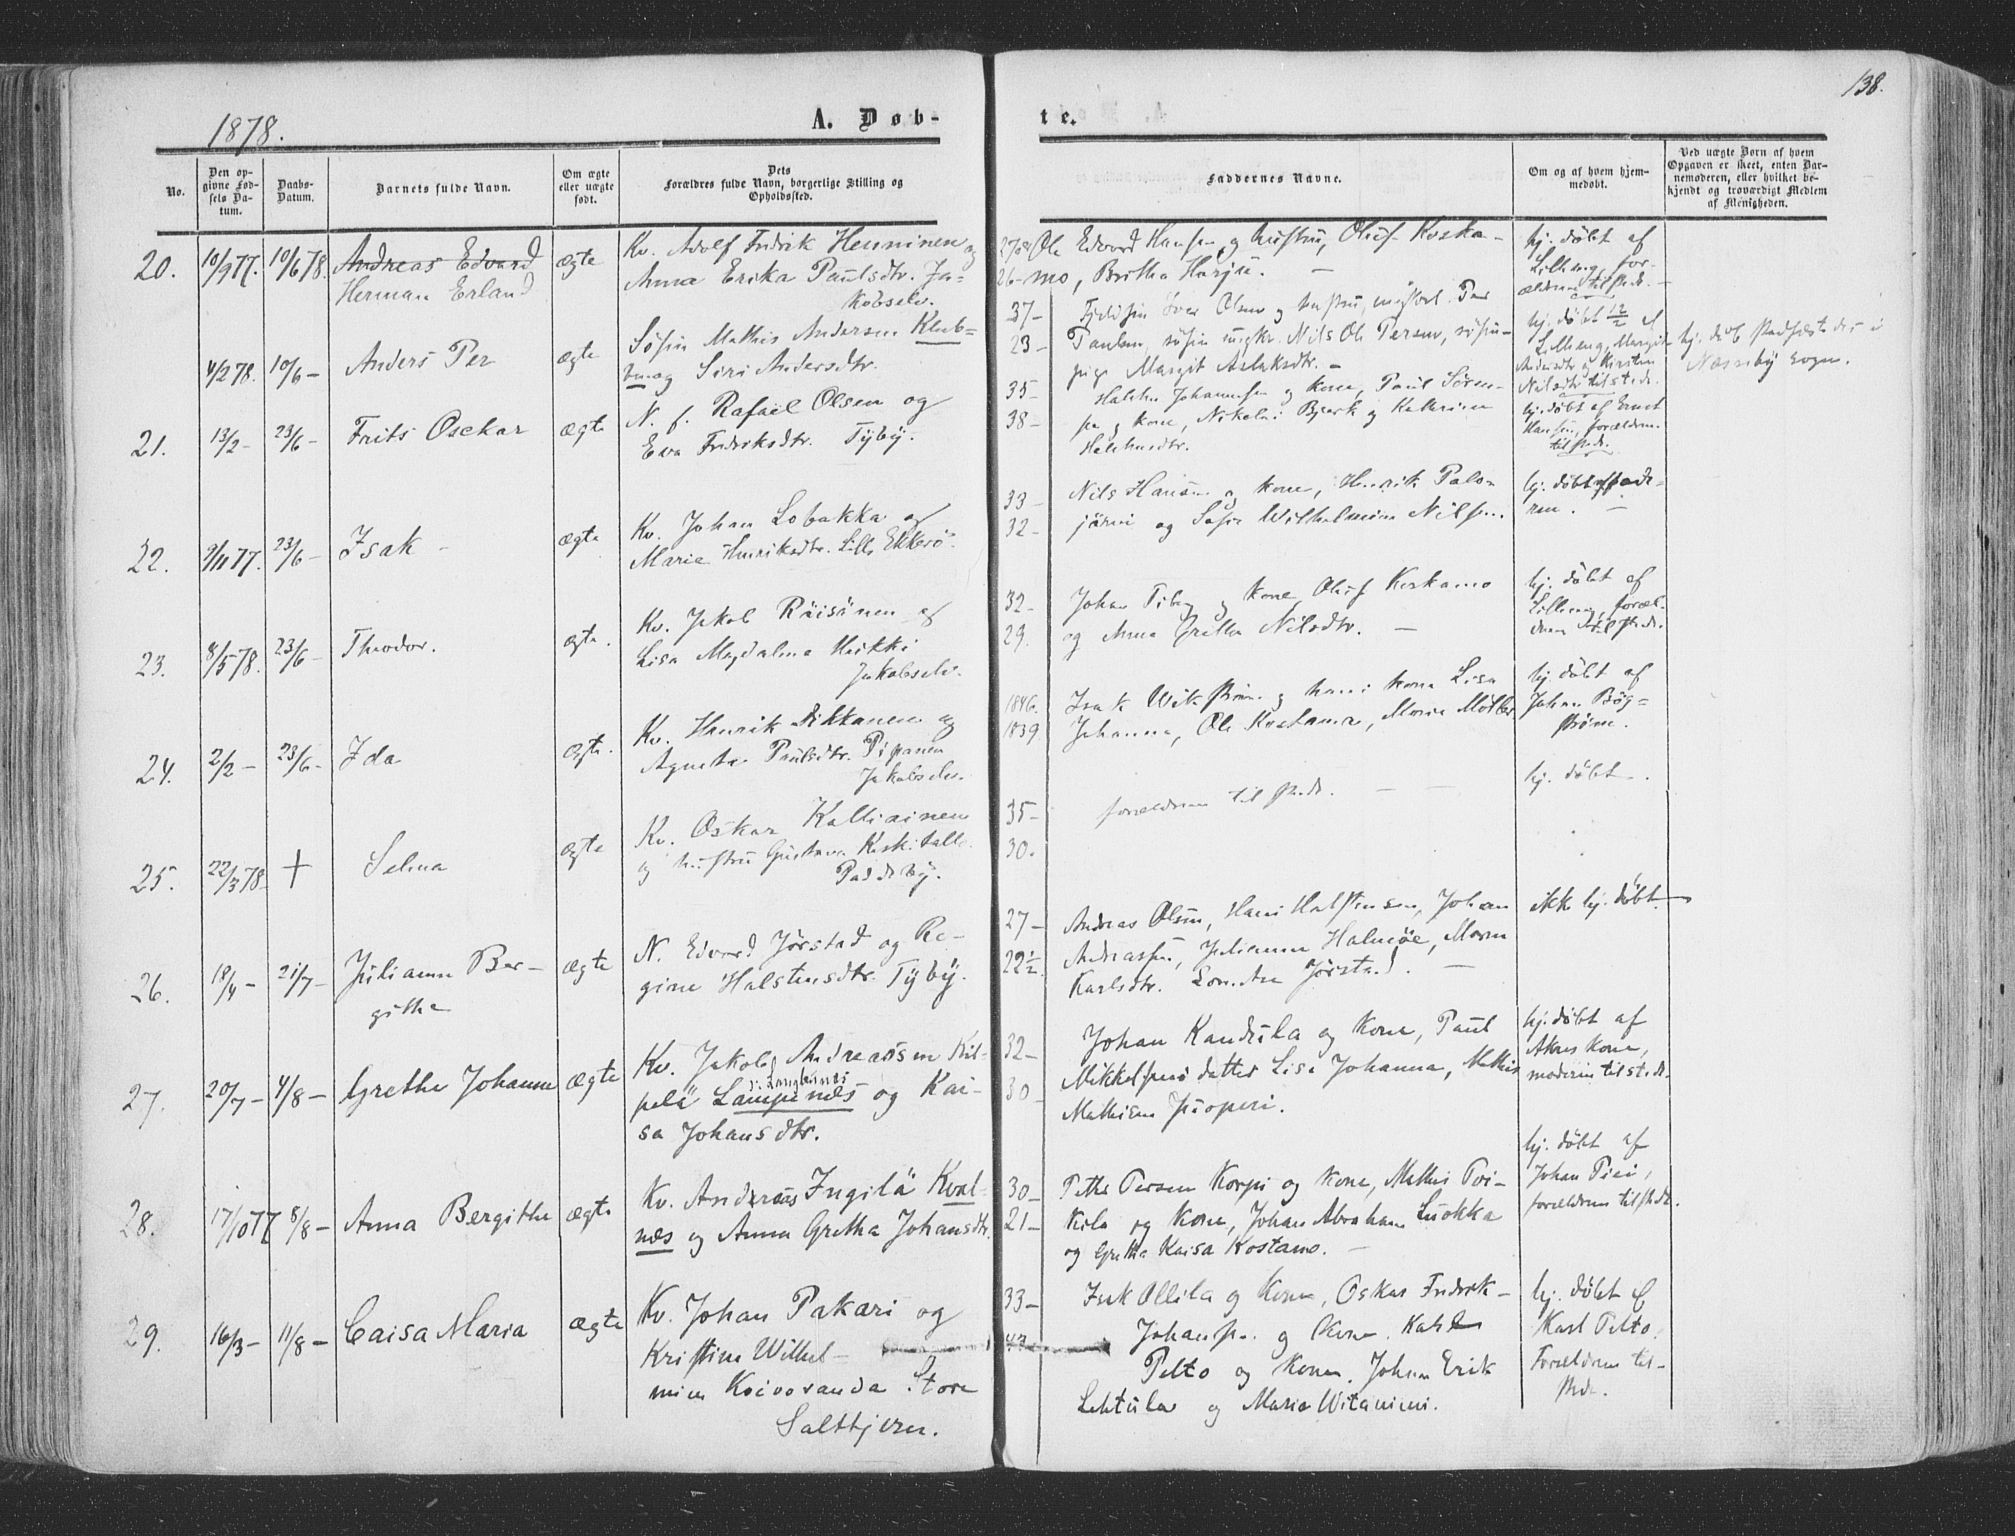 138.
1878.
A. Døb-
te.
No.
Den op-
givne Fød-
sels Da-
tum.
Daabs-
Datum.
Barnets fulde Navn.
Om ægte
eller uægte
født.
Dets
Forældres fulde Navn, borgerlige Stilling og
Opholdssted.
Faddernes Navne.
Om og af hvem hjem-
medøbt.
Ved uægte Børn af hvem
Opgaven er skeet, enten Bar-
nemoderen, eller hvilket be-
kjendt og troværdigt Medlem
af Menigheden.
20.
10/9 77.
10/6 78.
Andreas Edvard
Herman Erland
ægte
Kv. Adolf Fredrik Henninen og
Anna Erika Paulsdtr. Ja-
kobselv.
Ole Edvard Hansen og hustru, Oluf Koska-
26-
mo, Britha Harju. —
hj. døbt af
Lilleeng, for-
ældrene tilstede. —
4/2 78.
10/6 —
Anders Per
ægte
37-
23-
Søfin Mathis Andersen Klub-
ben og Siri Andersdtr.
Paulsen, søfin ungkr. Nils Ole Persen, søfin-
pige Margit Aslaksdtr. —
hj. døbt 12/2 af
Lilleeng, Margit
Andersdtr og Kirsten
Nilsdtr tilstede.
hj. døb stadfæstedes i
Næsseby sogn.
21.
13/2 —
23/6 —
Frits Osckar
ægte
N. f. Rafael Olsen og
Eva Fredriksdtr. Tyby.
35-
38-
Halsten Johannesen og kone, Paul Søren-
sen og kone, Nikolai Bjørk og Kathrine
Halstensdtr.
hj. døbt af Ernst
Hansen, forældrene
tilstede.
22.
9/11 77.
23/6 —
Isak —
ægte
Kv. Johan Lobakka og
Marie Henriksdtr. Lille Ekkerø.
33-
32-
Nils Hansen og kone, Henrik Palo-
järvi og Sofie Wilhelmine Nilsen.
hj. døbt af fade-
ren. —
23.
8/5 78.
23/6 —
Theodor.
ægte.
Kv. Jakob Räisänen og
Lisa Magdalena Heikki
Jakobselv.
32-
29.
Johan Tiberg og kone, Oluf Koskamo
og Anna Gretha Nilsdtr. —
hj. døbt af
Lilleeng, foræl-
drene tilstede.
24.
2/2 —
23/6 —
Ida
ægte.
Kv. Henrik Pikkanen og
Agneta Paulsdtr. Pipanen
Jakobselv.
1846.
1839
Isak Wikstrøm og hans kone Lisa
Johanna, Ole Kostamo, Maria Møller
hj. døbt af
Johan Bög-
strøm.
25.
22/3 78
+
Selma
ægte
Kv. Oskar Kalliainen
og hustru Gustava Keskitallo
Paddeby.
35-
30.
forældrene tilstede. — —
hj. døbt —.
26.
18/4 —
21/7 —
Juliane Ber-
githe
ægte
N. Edvard Jørstad og Re-
gine Halstensdtr. Tyby.
27-
22½.
Andreas Olsen, Hans Halstensen, Johan
Andreassen, Julianne Halmøe, Maren
Karlsdtr. Jørstad. —
ikke hj. døbt —
27.
20/7 —
4/8 —
Grethe Johanne
ægte
Kv. Jakob Andreassen Kil-
ɔ: Langbunes
pelä Lampinæs og Kai-
sa Johansdtr.
32-
30-
Johan Kandula og kone, Paul
Mikkelsens datter Lisa Johanna, Mathis
Mathisen Juoperi.
hj. døbt af
Akres kone,
moderen tilstede.
28.
17/10 77
8/8 —
Anna Bergithe
ægte
Kv. Andreas Ingilä Kval-
næs og Anna Gretha Johansdtr.
30-
21-
Petter Persen Korpi og kone, Mathis Poi-
kila og kone, Johan Abraham Luokka
og Gretha Kaisa Kostamo. —
hj. døbt af
Johan Piei,
forældrene tilstede.
29.
16/3 —
11/8 —
Caisa Maria
ægte
Kv. Johan Pakari og
Kristine Wilhel-
mine Koivoranda Store
Saltbjeren.
33-
43-
Isak Ollila og kone, Oskar Fredrik
Johansen og kone. Karl
Pelto og kone. Johan Erik
Lehtula og Maria Witaniemi.
hj. døbt af
Karl Pelto.
Forældrene til-
stede.